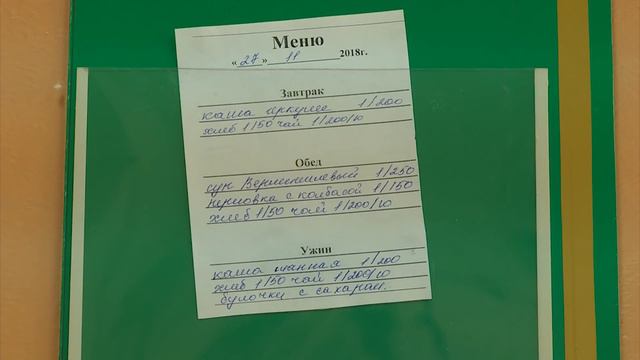 Меню
« 27 » 11 2018г.
Завтрак
каша геркулес 1/200
хлеб 1/50 чай 1/200/10
Обед
суп Вермишелевый 1/250
перловка с колбасой 1/150
хлеб 1/50 чай 1/200/10
Ужин
каша манная 1/200
хлеб 1/50 чай 1/200/10
булочки с сахаром.